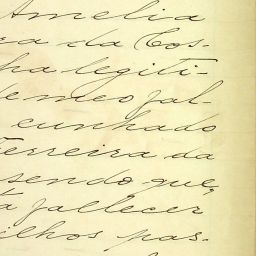 Amelia
ra da Cos-
ha legiti-
de meo fal-
cunhado
Ferreira da
sendo que
a fallecer
ilhos pas-